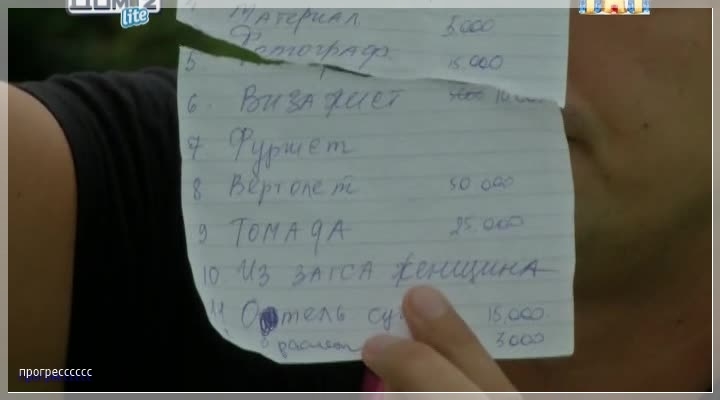 ДОМ 2
lite
4 Материал 5000
5 Фотограф 15.000
6. Визажист 5000 10.000
7 Фуршет
8 Вертолет 50 000
9 ТОМАДА 25.000
10 Из загса женщина
11 Отель 15.000
3000
прогресссссс